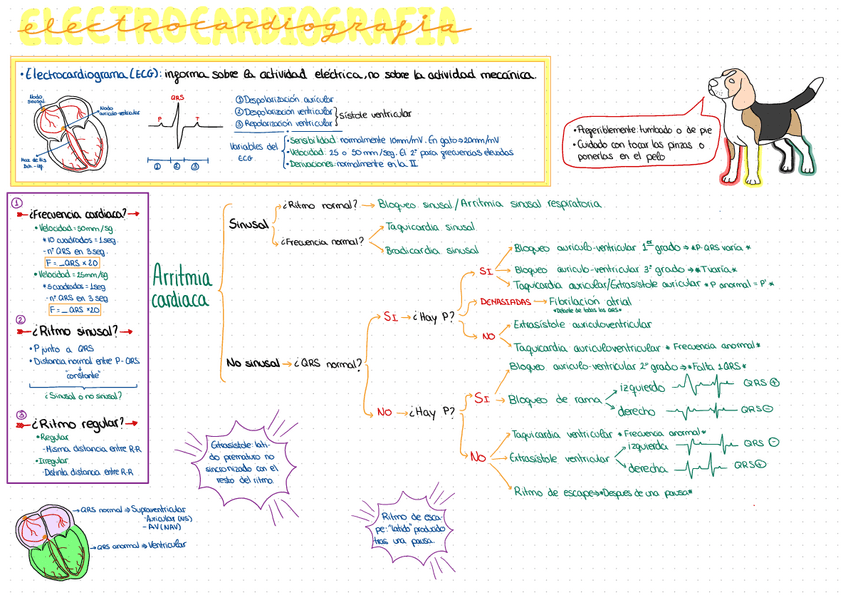 electrocardiografia
ELECTROCARDIOGRAFIA
• Electrocardiograma (ECG): informa sobre la actividad eléctrica, no sobre la actividad mecánica.
Nodo sinusal
Nodo auriculo ventricular
Haz de His
QRS
P
T
① ② ③
① Despolarización auricular
② Despolarización ventricular
③ Repolarización ventricular
sístole ventricular
Variables del ECG
• Sensibilidad: normalmente 10mm/mV. En gato→20mm/mV
• Velocidad: 25 o 50 mm/seg. El 2° para frecuencias elevadas
• Derivaciones: normalmente en la II.
• Preferiblemente: tumbado o de pie
• Cuidado con tocar las pinzas o
ponerlas en el pelo
①
¿Frecuencia cardiaca?
• Velocidad=50mm/sg
*10 cuadrados=1seg
-n° QRS en 3 seg
F=_QRS×20
• Velocidad=25mm/sg
*5 cuadrados=1seg
-n° QRS en 3 seg
F=_QRS×20
②
¿Ritmo sinusal?
• P junto a QRS
• Distancia normal entre P-QRS
"constante"
¿Sinusal o no sinusal?
③
¿Ritmo regular?
• Regular
-Misma distancia entre R-R
• Irregular
-Distinta distancia entre R-R
Arritmia
cardiaca
Sinusal
¿Ritmo normal? → Bloqueo sinusal/Arritmia sinusal respiratoria
¿Frecuencia normal?
Taquicardia sinusal
Bradicardia sinusal
No sinusal → ¿QRS normal?
SI → ¿Hay P?
SI
Bloqueo auriculo-ventricular 1er grado → *P-QRS varia*
Bloqueo auriculo-ventricular 3er grado → *T varia*
Taquicardia auricular/Extrasístole auricular *P anormal = P'*
DEMASIADAS → Fibrilación atrial
*Delante de todos los QRS*
NO
Extrasístole auriculoventricular
Taquicardia auriculoventricular *Frecuencia anormal*
NO → ¿Hay P?
SI
Bloqueo auriculo-ventricular 2° grado → *Falta 1 QRS*
Bloqueo de rama
izquierdo QRS ⊕
derecho QRS ⊖
NO
Taquicardia ventricular *Frecuencia anormal*
Extrasístole ventricular
izquierda QRS ⊖
derecha QRS ⊕
Ritmo de escape → *Después de una pausa*
Extrasístole: lati-
do prematuro no
sincronizado con el
resto del ritmo
Ritmo de esca-
pe: "latido" producido
tras una pausa
QRS normal → Supraventricular
-Auricular (NS)
-AV (NAV)
QRS anormal → Ventricular